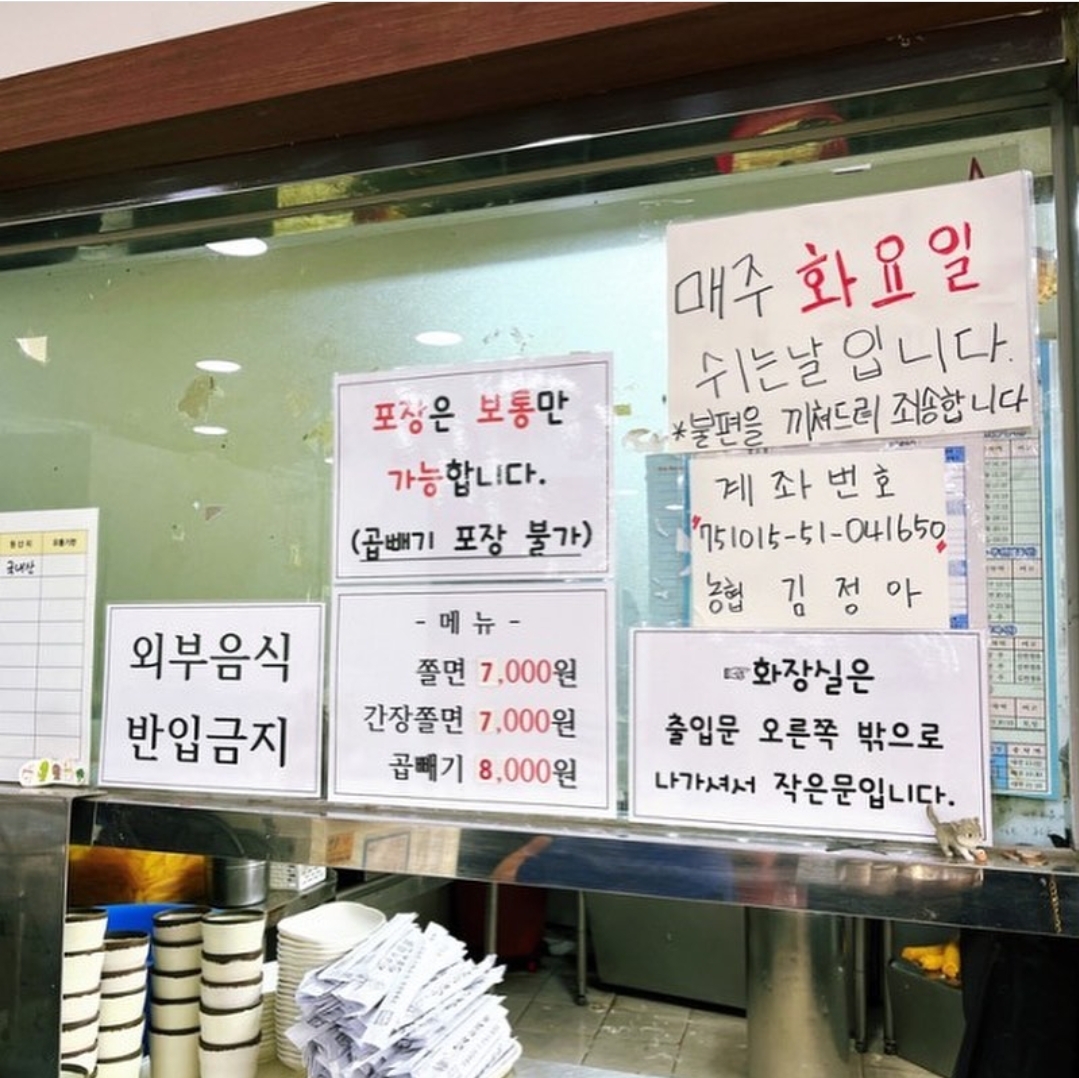 매주 화요일
쉬는날 입니다.
*불편을 끼쳐드려 죄송합니다
포장은 보통만
가능합니다.
(곱빼기 포장 불가)
계좌번호
751015-51-041650
농협 김정아
- 메뉴 -
쫄면 7,000원
간장쫄면 7,000원
곱빼기 8,000원
외부음식
반입금지
☞화장실은
출입문 오른쪽 밖으로
나가셔서 작은문입니다.
원산지 유통기한
국내산